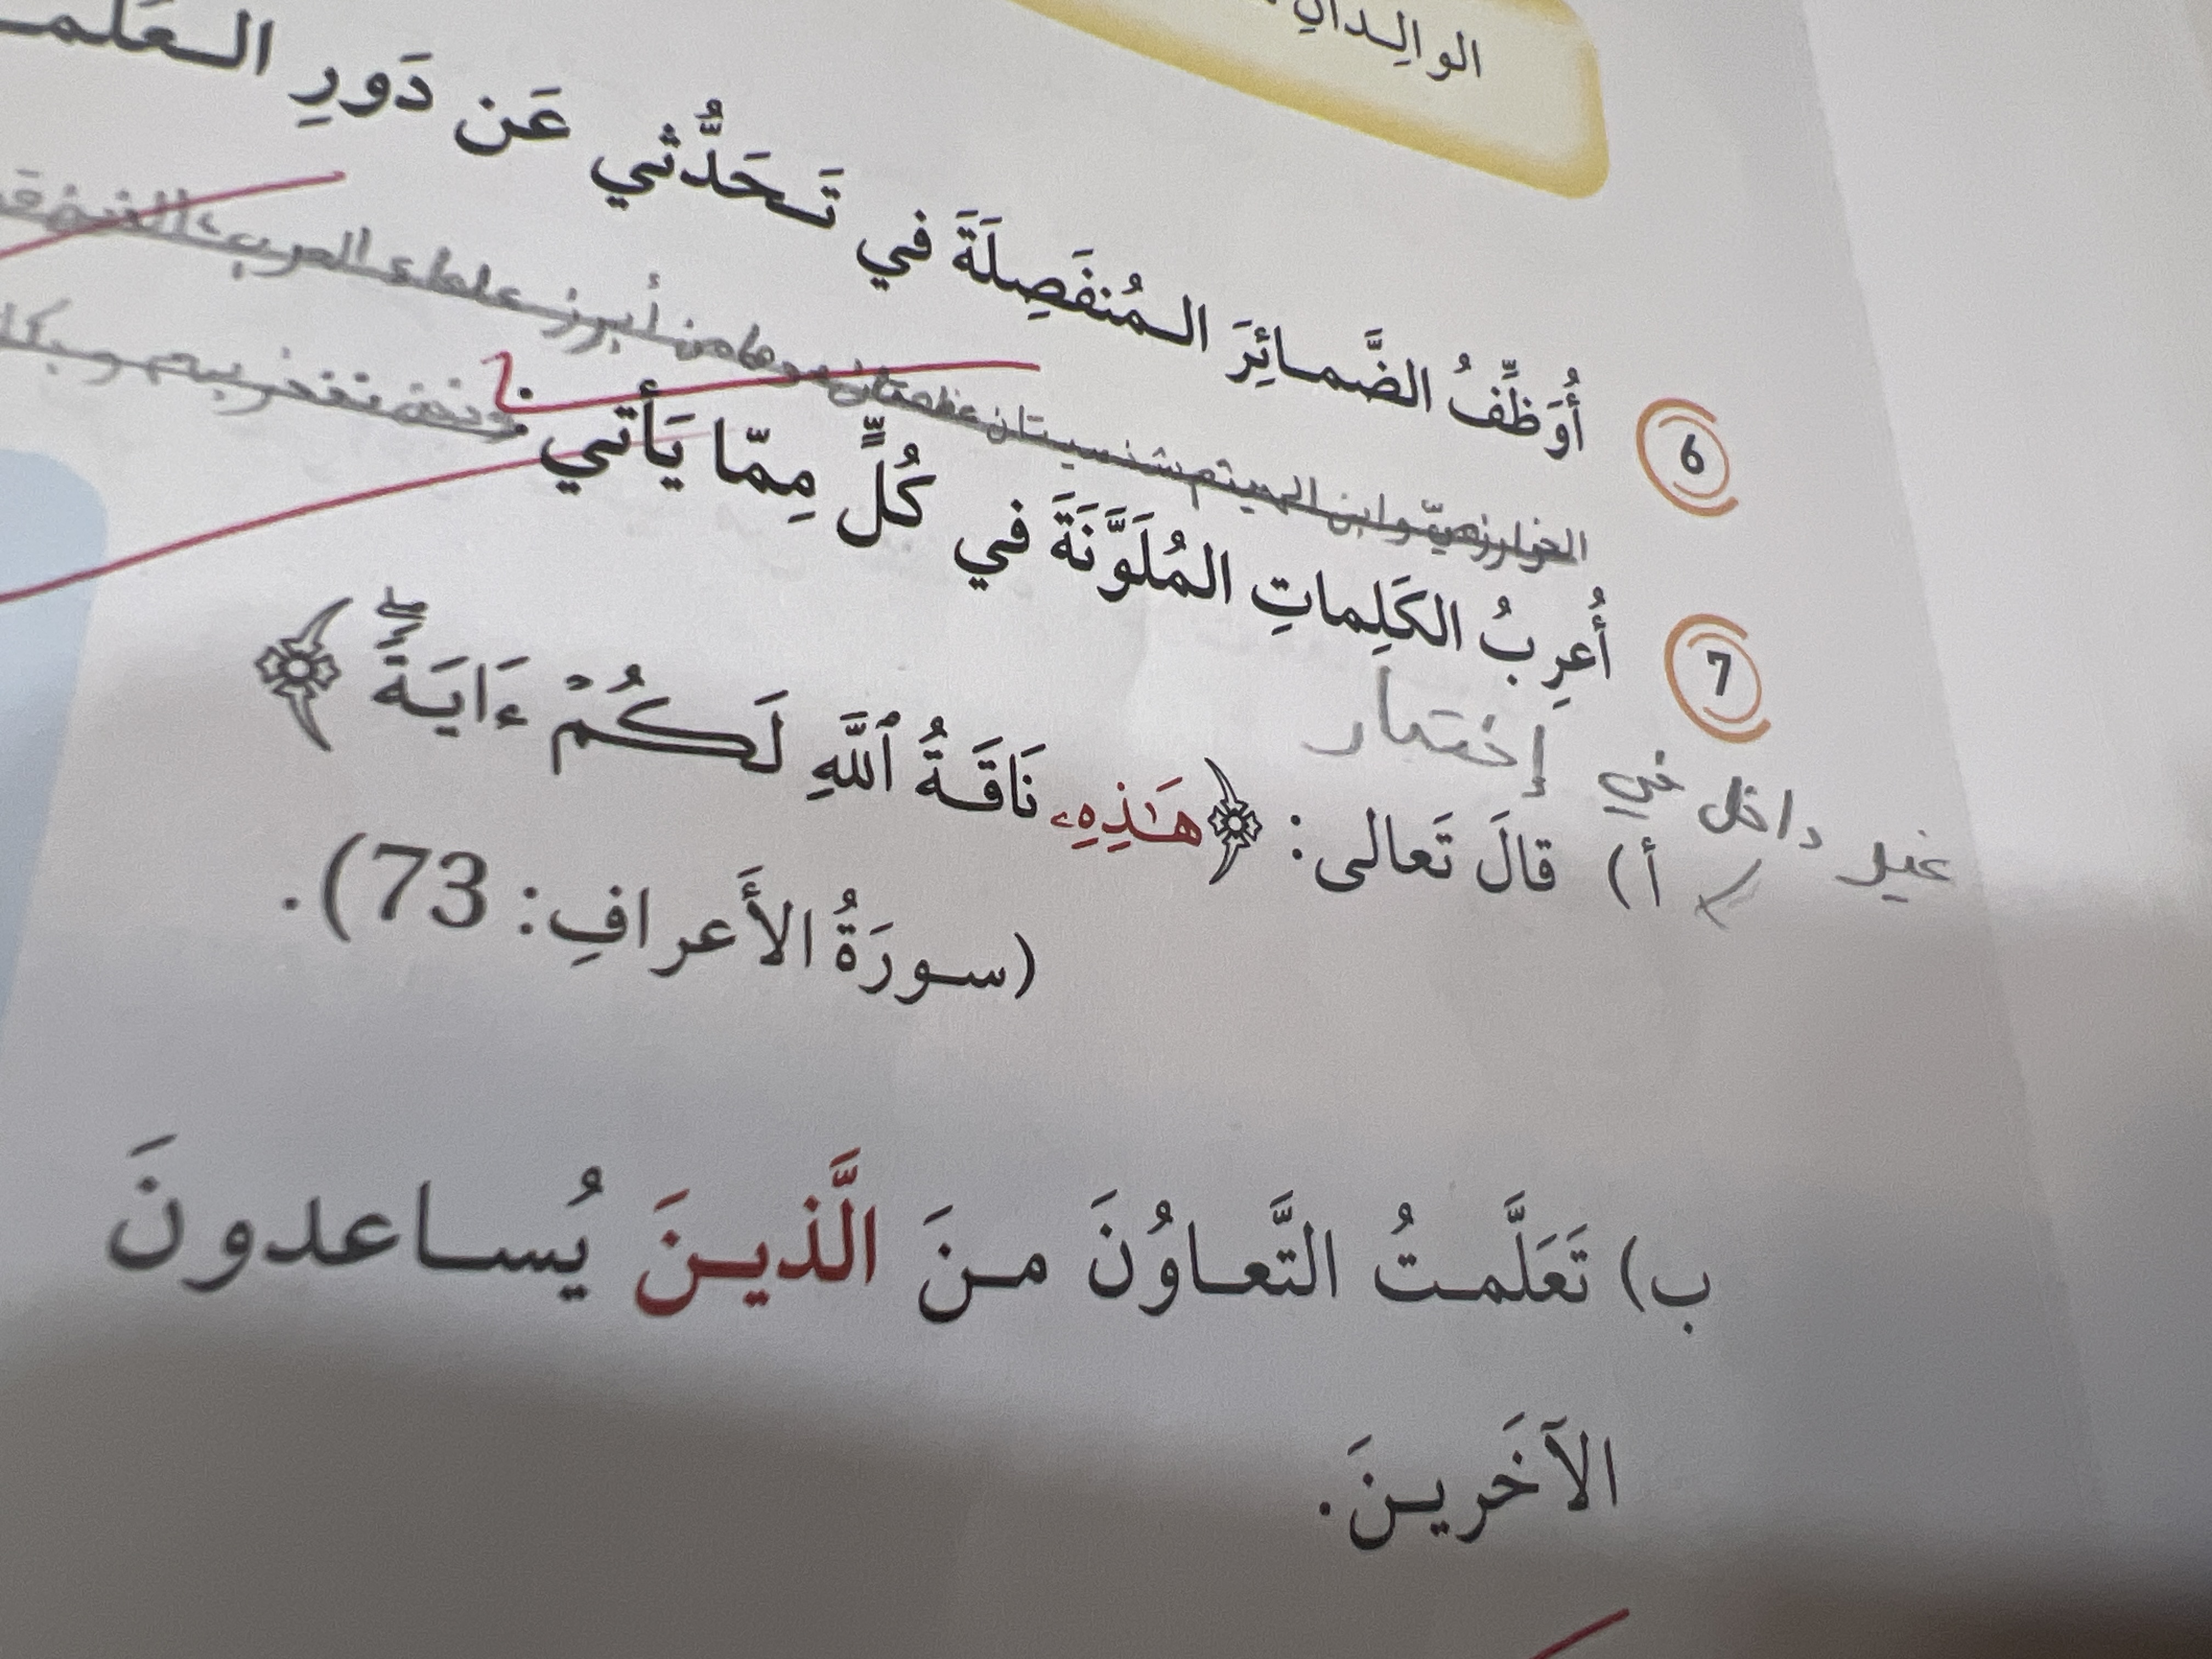 الوالِدانِ
6 أُوَظِّفُ الضَّمائِرَ المُنفَصِلَةَ في تَحَدُّثي عَن دَورِ
الخوارزميّ وابن الهيثم شخصيتان عظيمتان وهما من أبرز علماء العرب
ونحن نفخر بهم
7 أُعرِبُ الكَلِماتِ المُلَوَّنَةَ في كُلٍّ مِمّا يَأتي:
غير داخل في إختبار
أ) قالَ تَعالى: ﴿هَـٰذِهِۦ نَاقَةُ ٱللَّهِ لَكُمْ ءَايَةًۖ﴾
(سورَةُ الأَعرافِ: 73).
ب) تَعَلَّمتُ التَّعاوُنَ منَ الَّذينَ يُساعدونَ
الآخَرينَ.